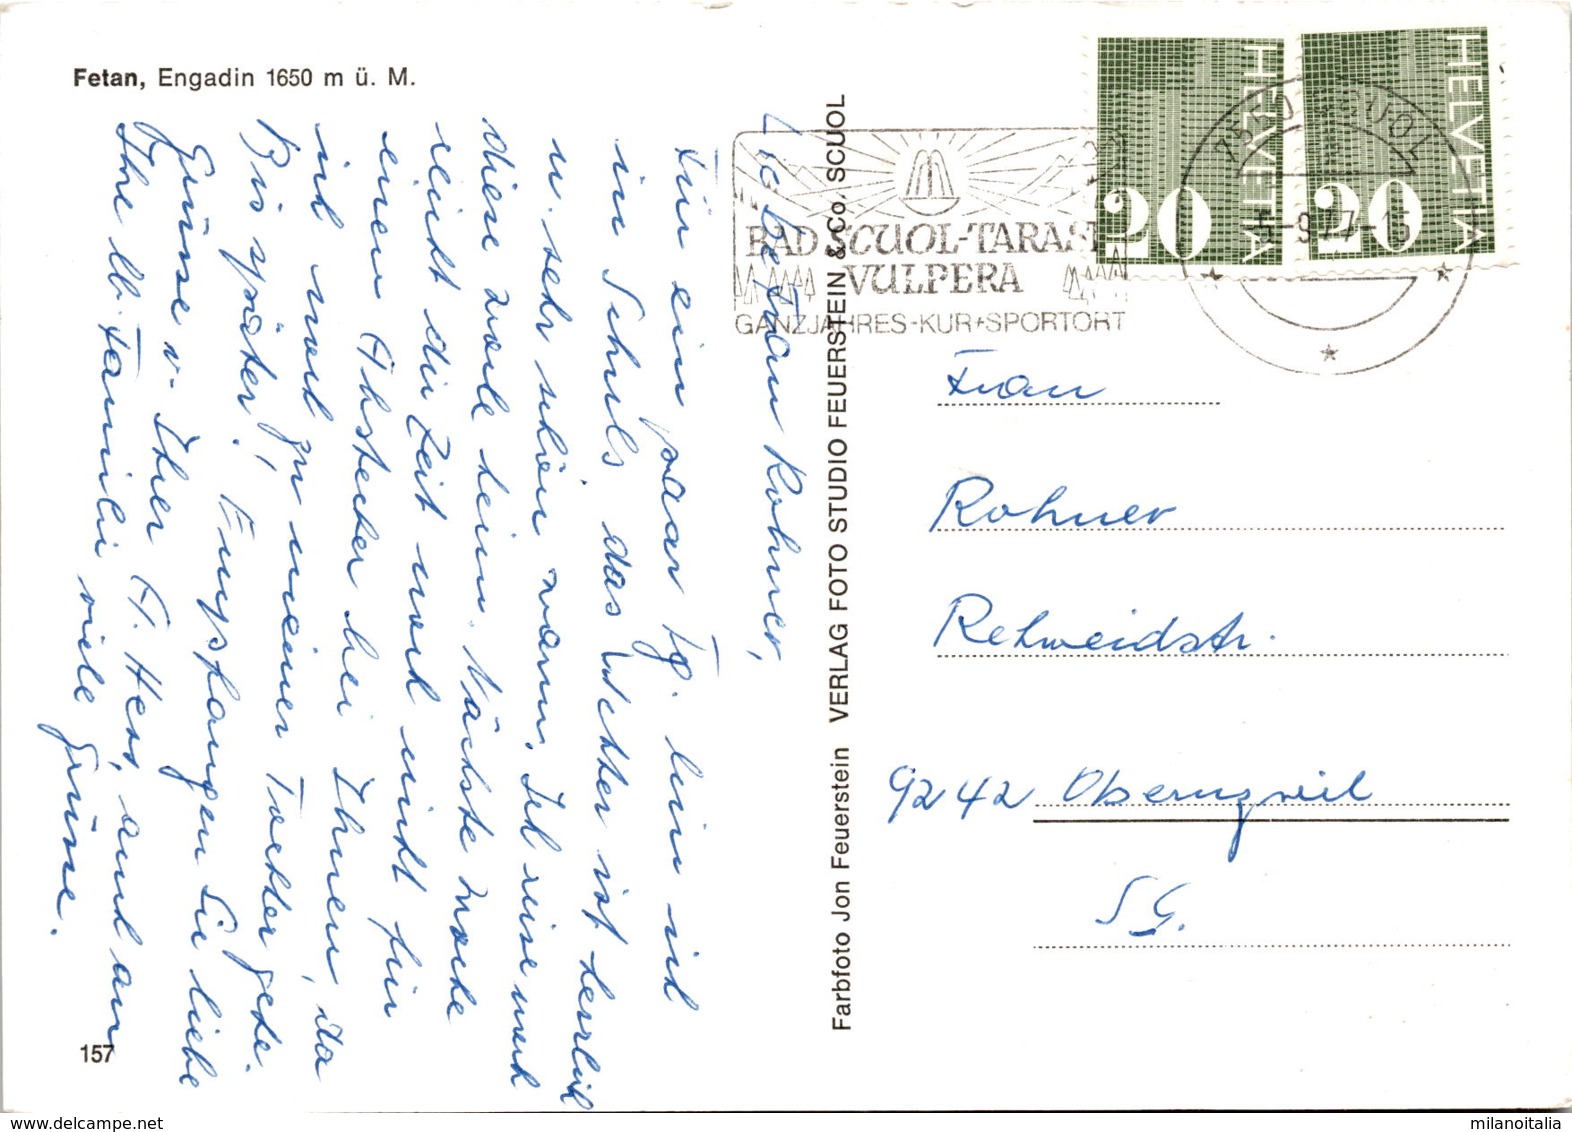 Fetan, Engadin 1650 m ü. M.
Liebe Frau Rohner,
Für ein paar Tg. bin ich
in Schuls, das Wetter ist herrlich
u. sehr schön warm. Ich reise noch
diese Woche heim. Nächste Woche
reicht die Zeit noch nicht für
einen Abstecher bei Ihnen, da
ich noch zu meiner Tochter gehe.
Bis später! Empfangen Sie liebe
Grüsse v. Ihrer F. Hess, auch an
Ihre lb. Familie viele Grüsse.
157
Farbfoto Jon Feuerstein VERLAG FOTO STUDIO FEUERSTEIN & Co. SCUOL
BAD SCUOL-TARASP
VULPERA
GANZJAHRES-KUR+SPORTORT
HELVETIA
20
HELVETIA
20
7550 SCUOL
5-9.77-15
Frau
Rohner
Rehweidstr.
9242 Oberuzwil
SG.
milanoitalia